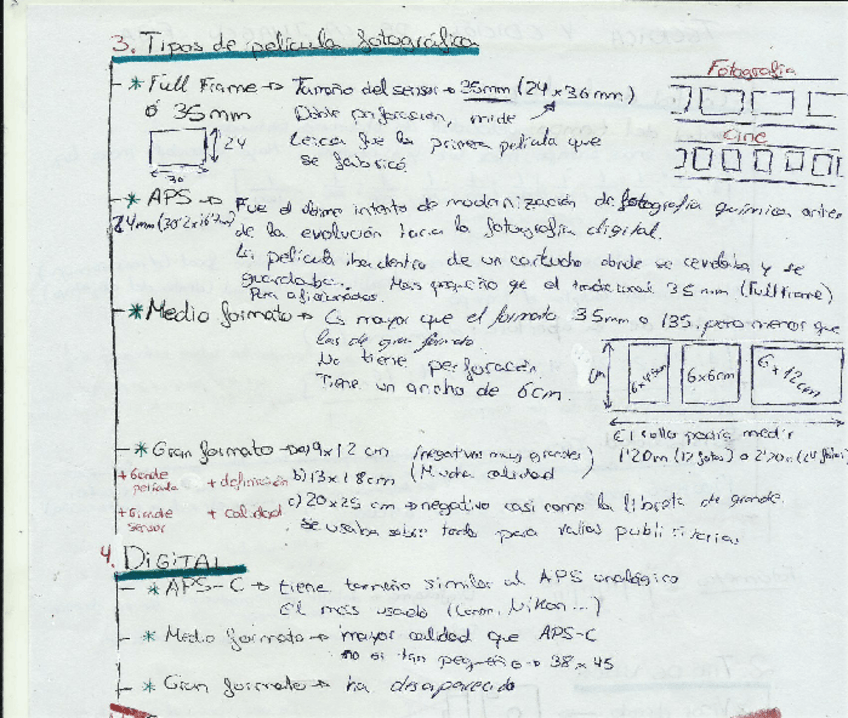 3. Tipos de película fotográfica
Fotografía
* Full Frame → Tamaño del sensor → 35mm (24 x 36 mm)
ó 35mm Doble perforación, mide
24
36
Leica fue la primera película que
se fabricó.
Cine
* APS → Fue el último intento de modernización de fotografía química antes
24mm (30'2x16'7mm) de la evolución hacia la fotografía digital.
La película iba dentro de un cartucho donde se revelaba y se
guardaba. Más pequeño que el tradicional 35mm (fullframe)
Para aficionados.
* Medio formato → Es mayor que el formato 35mm o 135, pero menor que
los de gran formato.
No tiene perforación.
Tiene un ancho de 6cm.
6cm
6x4'5cm
6x6cm
6x12cm
El rollo podía medir
1'20m (12 fotos) o 2'20m (24 fotos)
* Gran formato → a) 9x12 cm (negativos muy grandes)
+ Grande película + definición b) 13x18cm (Mucha calidad)
+ Grande sensor + calidad c) 20x25 cm → negativo casi como la libreta de grande.
Se usaba sobre todo para vallas publicitarias
4. DIGITAL
* APS-C → tiene tamaño similar al APS analógico
El más usado (Canon, Nikon...)
* Medio formato → mayor calidad que APS-C
no es tan pequeño → 38x45
* Gran formato → ha desaparecido